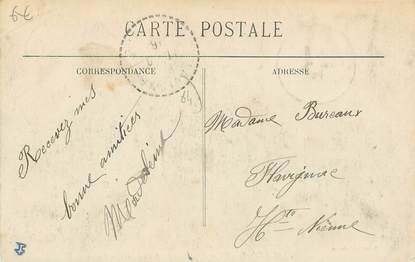 6€
CARTE POSTALE
CORRESPONDANCE
ADRESSE
Recevez mes
bonne amitiées
Madeleine
Madame Bureaux
Flavignac
Hte Vienne